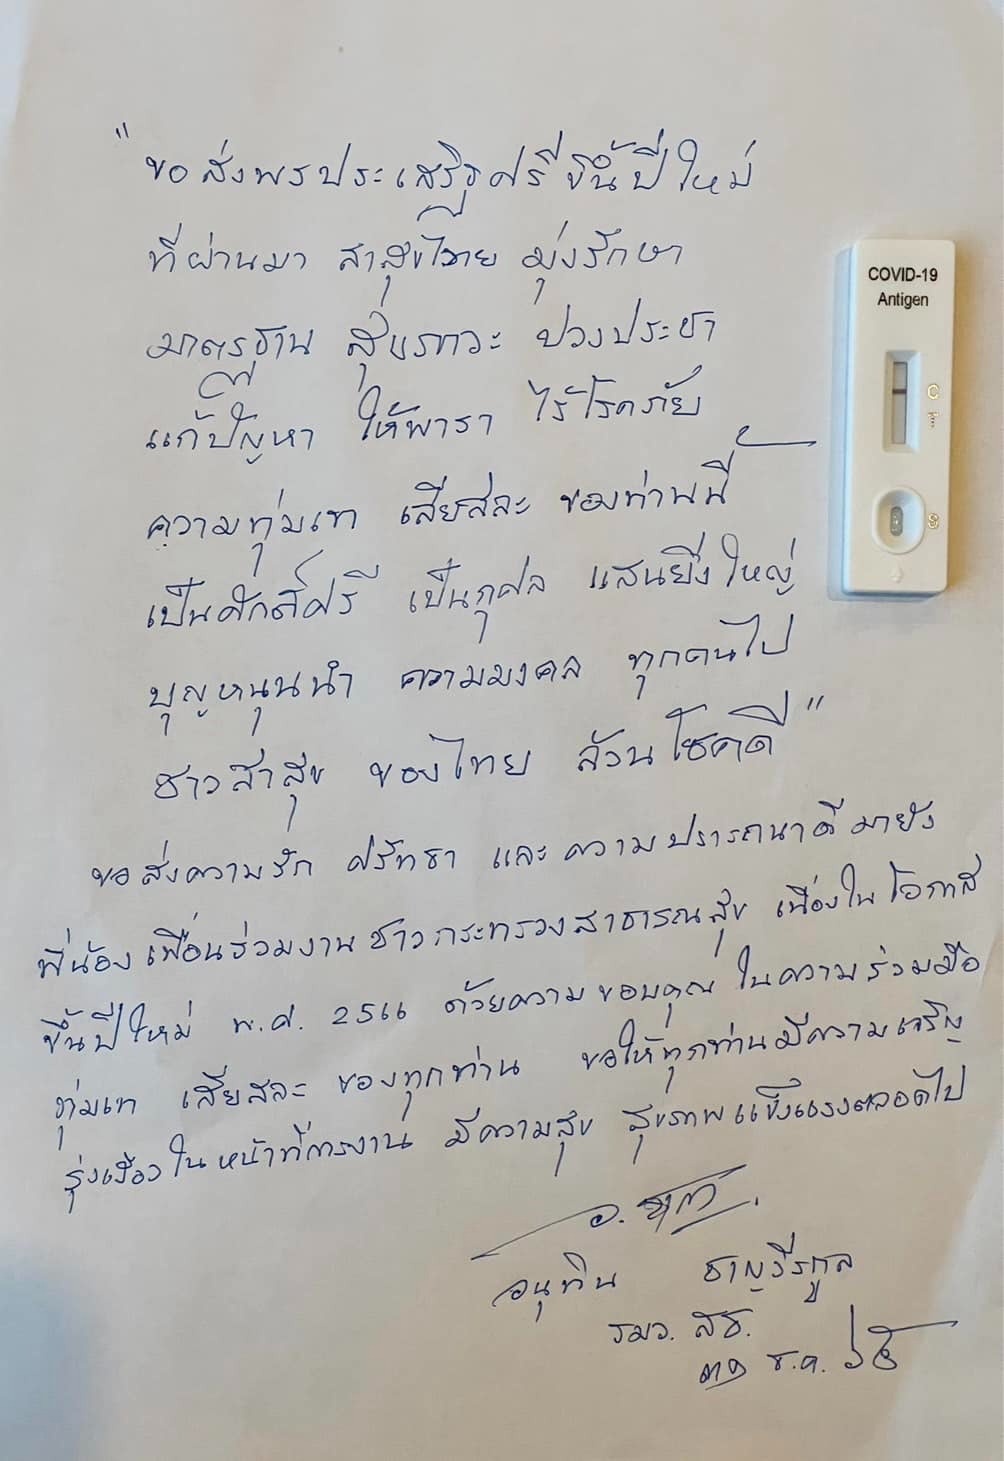 "ขอส่งพรประเสริฐศรีขึ้นปีใหม่
ที่ผ่านมา สาสุขไทย มุ่งรักษา
มาตรฐาน สุขภาวะ ปวงประชา
แก้ปัญหา ให้พารา ไร้โรคภัย
ความทุ่มเท เสียสละ ของท่านนี้
เป็นศักดิ์ศรี เป็นกุศล แสนยิ่งใหญ่
บุญหนุนนำ ความมงคล ทุกคนไป
ชาวสาสุข ของไทย ล้วนโชคดี"
ขอส่งความรัก ศรัทธา และความปรารถนาดีมายัง
พี่น้องเพื่อนร่วมงานชาวกระทรวงสาธารณสุข เนื่องในโอกาส
ขึ้นปีใหม่ พ.ศ. 2566 ด้วยความขอบคุณ ในความร่วมมือ
ทุ่มเท เสียสละ ของทุกท่าน ขอให้ทุกท่านมีความเจริญ
รุ่งเรืองในหน้าที่การงาน มีความสุข สุขภาพแข็งแรงตลอดไป
อนุทิน ชาญวีรกูล
รมว. สธ.
๓๑ ธ.ค. ๖๕
COVID-19
Antigen
C
T
S